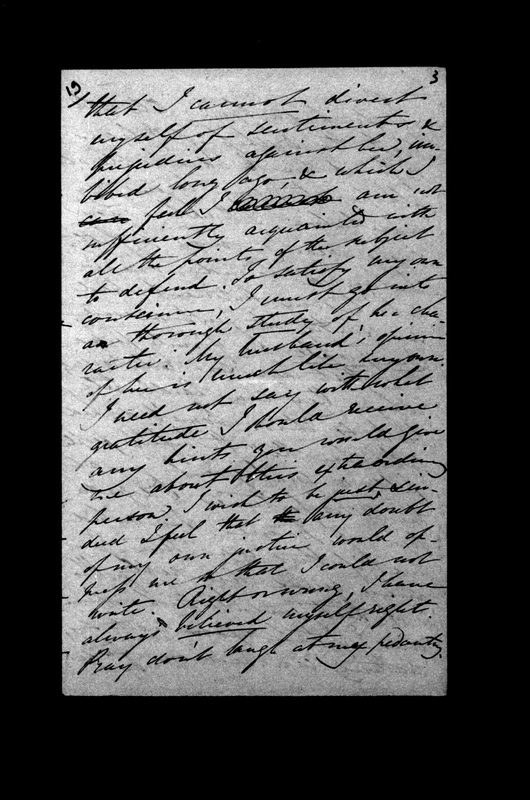 19
3
that I cannot divest
myself of sentiments &
prejudices against her, im-
bibed long ago, & which I
feel I am not
sufficiently acquainted with
all the points of the subject
to defend. To satisfy my own
conscience, I must go into
a thorough study of her cha-
racter. My husband's opinion
of her is much like my own.
I need not say with what
gratitude I should receive
any hints you would give
me about this extraordinary
person. I wish to be just, & in-
deed I feel that any doubt
of my own justice would op-
press me so that I could not
write. Right or wrong, I have
always believed myself right.
Pray don't laugh at my pedantry.